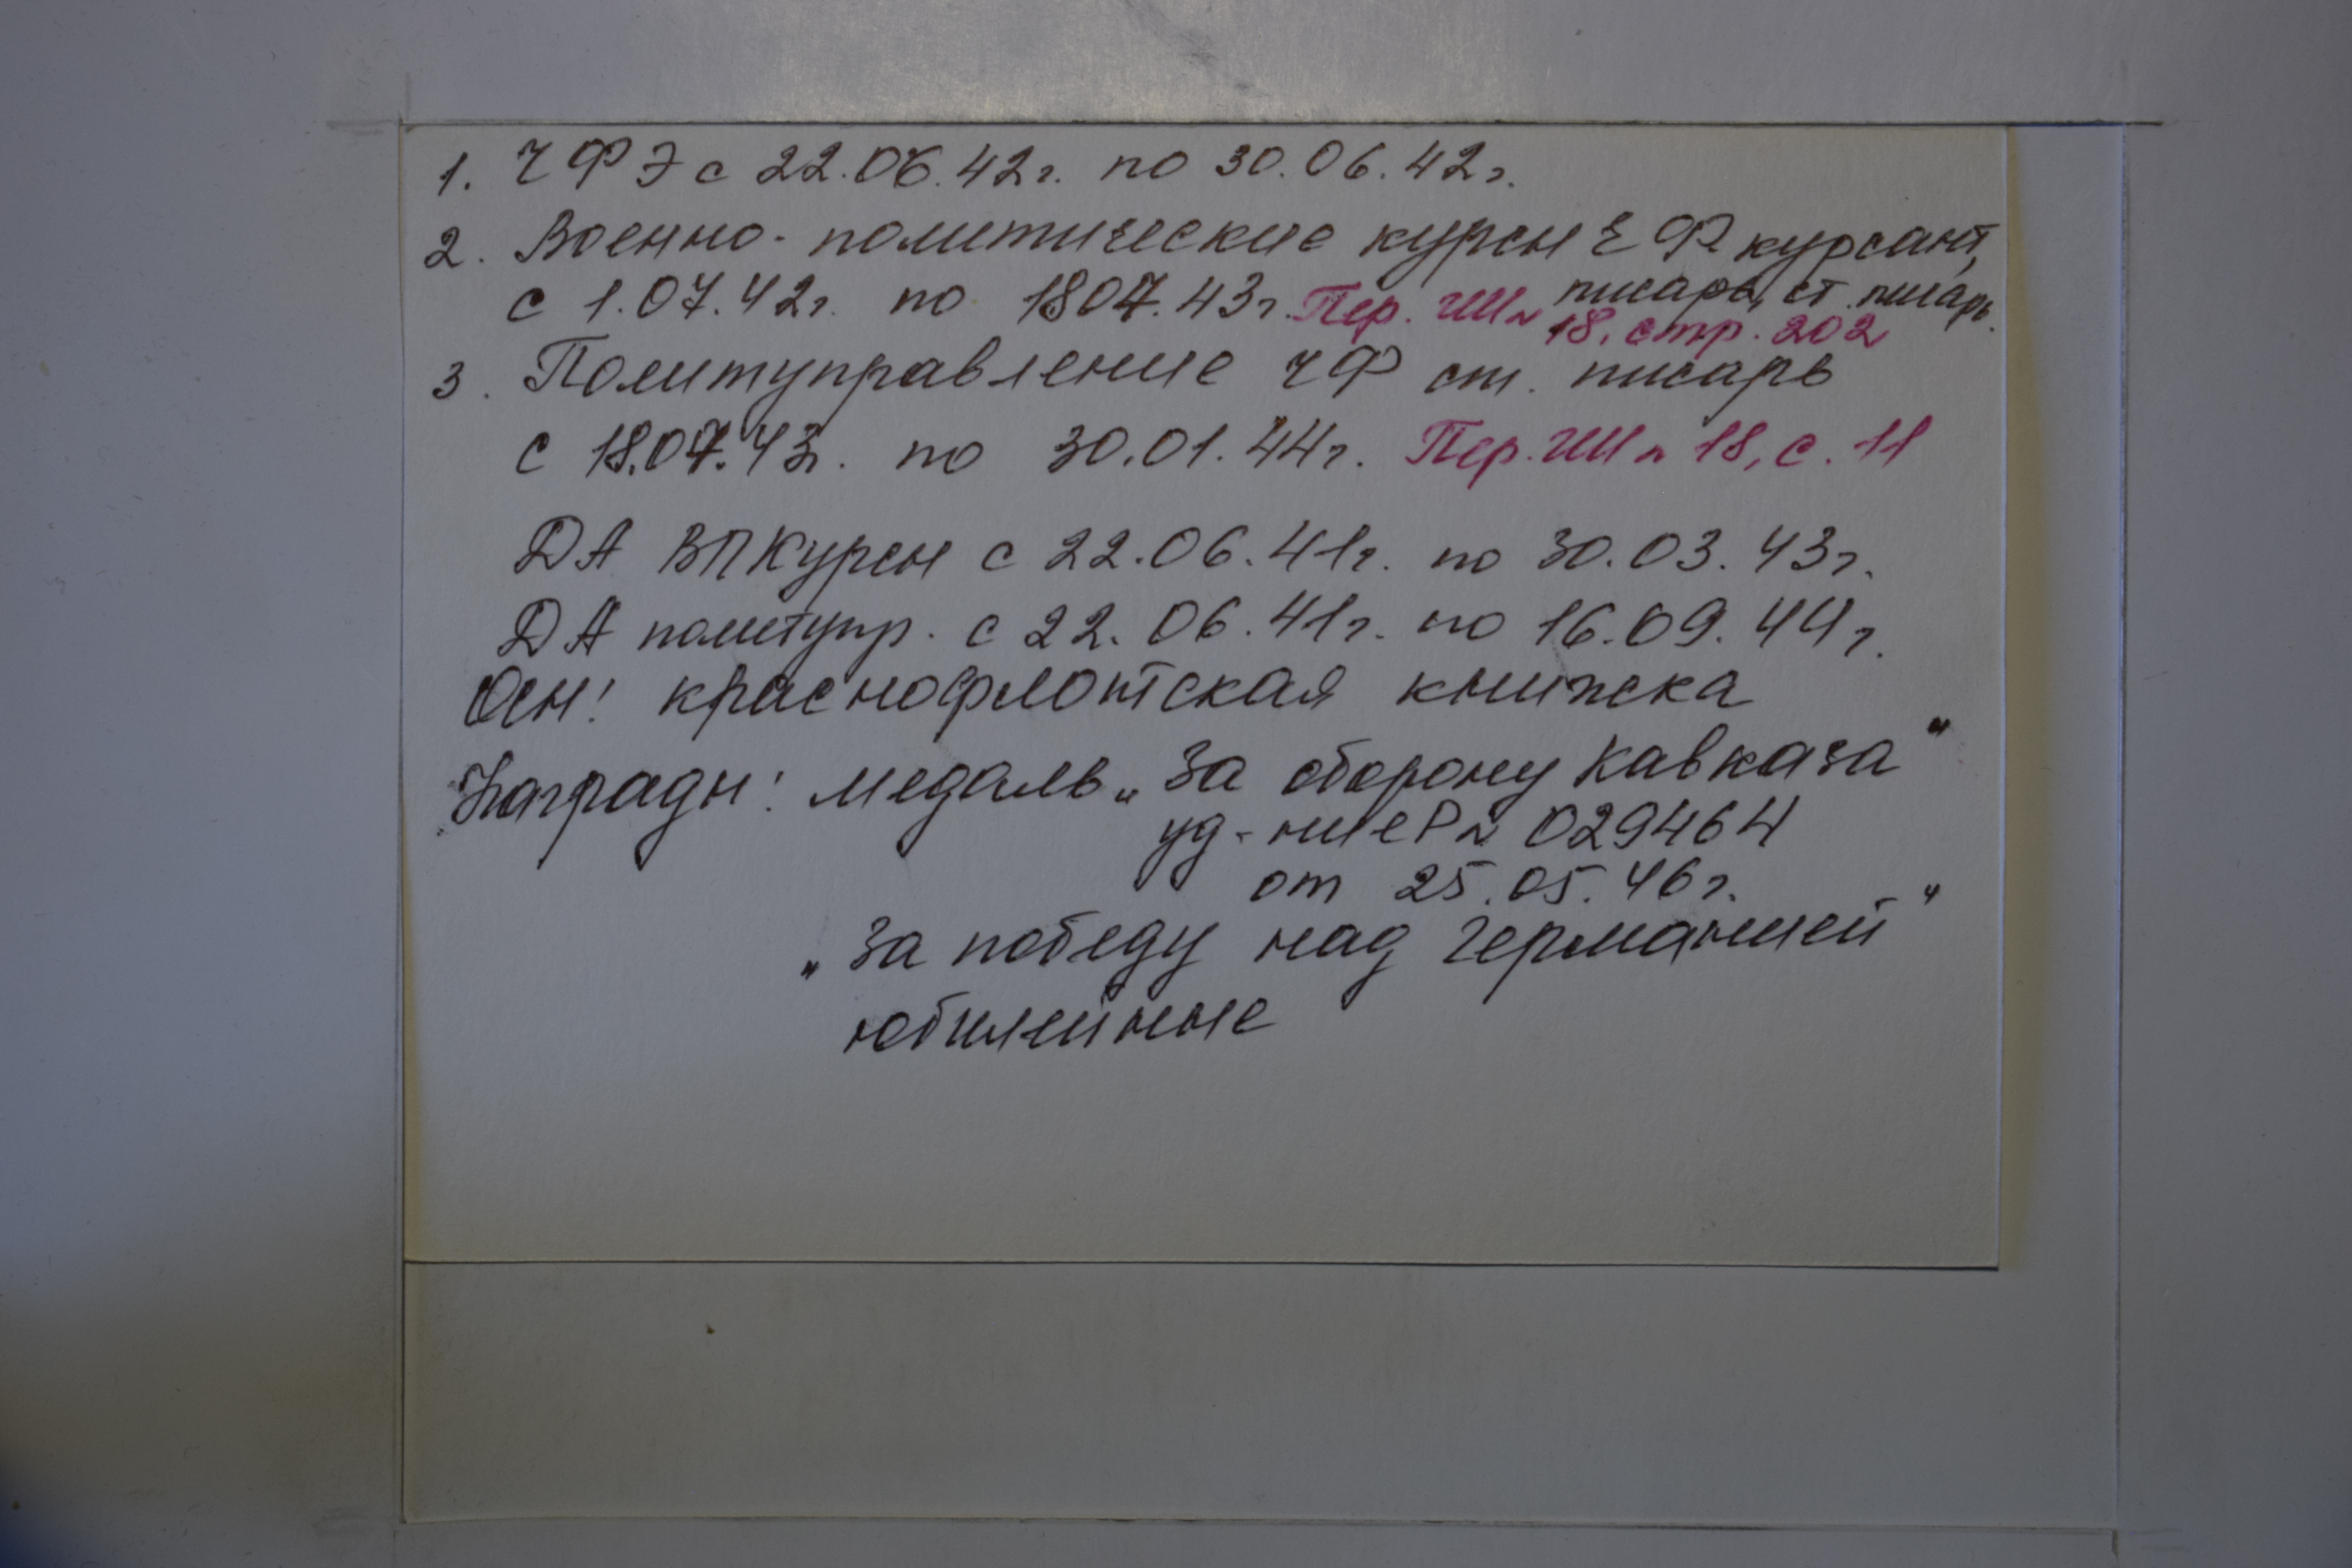 1. ЧФЭ с 22.06.42г. по 30.06.42г.
2. Военно-политические курсы ЧФ курсант,
писарь, ст. писарь.
с 1.07.42г. по 18.07.43г. Пер. ГШ №
18, стр. 202
3. Политуправление ЧФ ст. писарь
с 18.07.43г. по 30.01.44г. Пер. ГШ № 18, с. 11
ДА ВПКурсы с 22.06.41г. по 30.03.43г.
ДА политупр. с 22.06.41г. по 16.09.44г.
Осн: краснофлотская книжка
Награды: медаль „За оборону Кавказа"
уд-ние Р № 029464
от 25.05.46г.
„За победу над Германией"
юбилейные